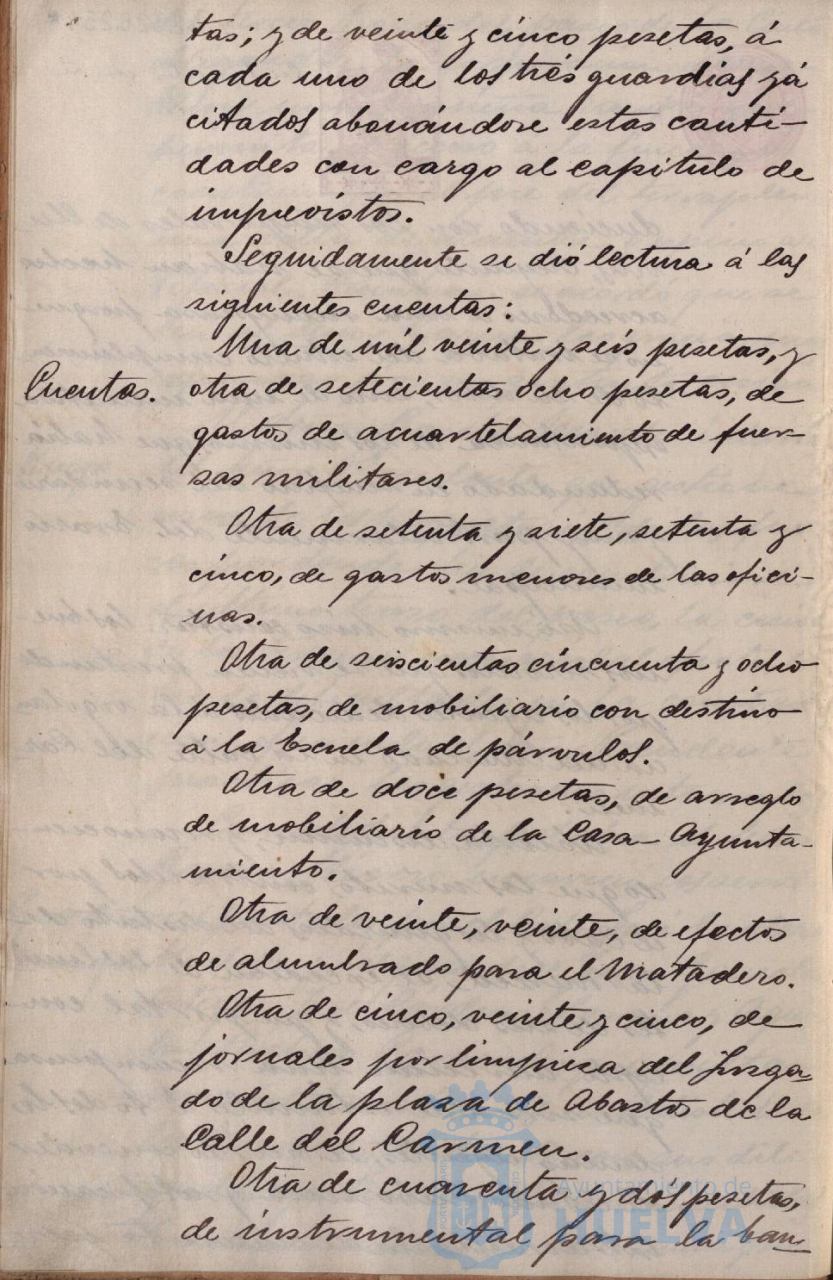 tas; y de veinte y cinco pesetas, á
cada uno de los trés guardias yá
citados abonándose estas canti-
dades con cargo al capitulo de
imprevistos.
Seguidamente se dió lectura á las
siguientes cuentas:
Una de mil veinte y seis pesetas, y
Cuentas.
otra de setecientas ocho pesetas, de
gastos de acuartelamiento de fuer-
sas militares.
Otra de setenta y siete, setenta y
cinco, de gastos menores de las ofici-
nas.
Otra de seiscientas cincuenta y ocho
pesetas, de mobiliario con destino
á la Escuela de párvulos.
Otra de doce pesetas, de arreglo
de mobiliario de la Casa-Ayunta-
miento.
Otra de veinte, veinte, de efectos
de alumbrado para el Matadero.
Otra de cinco, veinte y cinco, de
jornales por limpiesa del Jusga-
do de la plasa de Abastos de la
Calle del Carmen.
Otra de cuarenta y dós pesetas,
de instrumental para la ban-
Ayuntamiento de
HUELVA